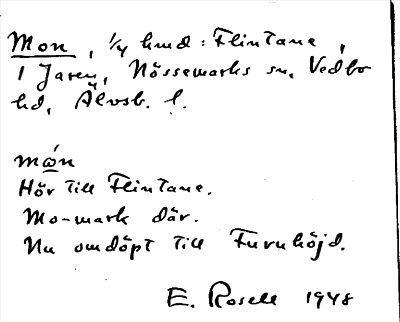 Mon, 1/4 hmd: Flintane,
1 Jaren, Nössemarks sn, Vedbo
hd, Älvsb. l.
mώn
Hör till Flintane.
Mo-mark där.
Nu omdöpt till Furuhöjd.
E. Rosell 1948